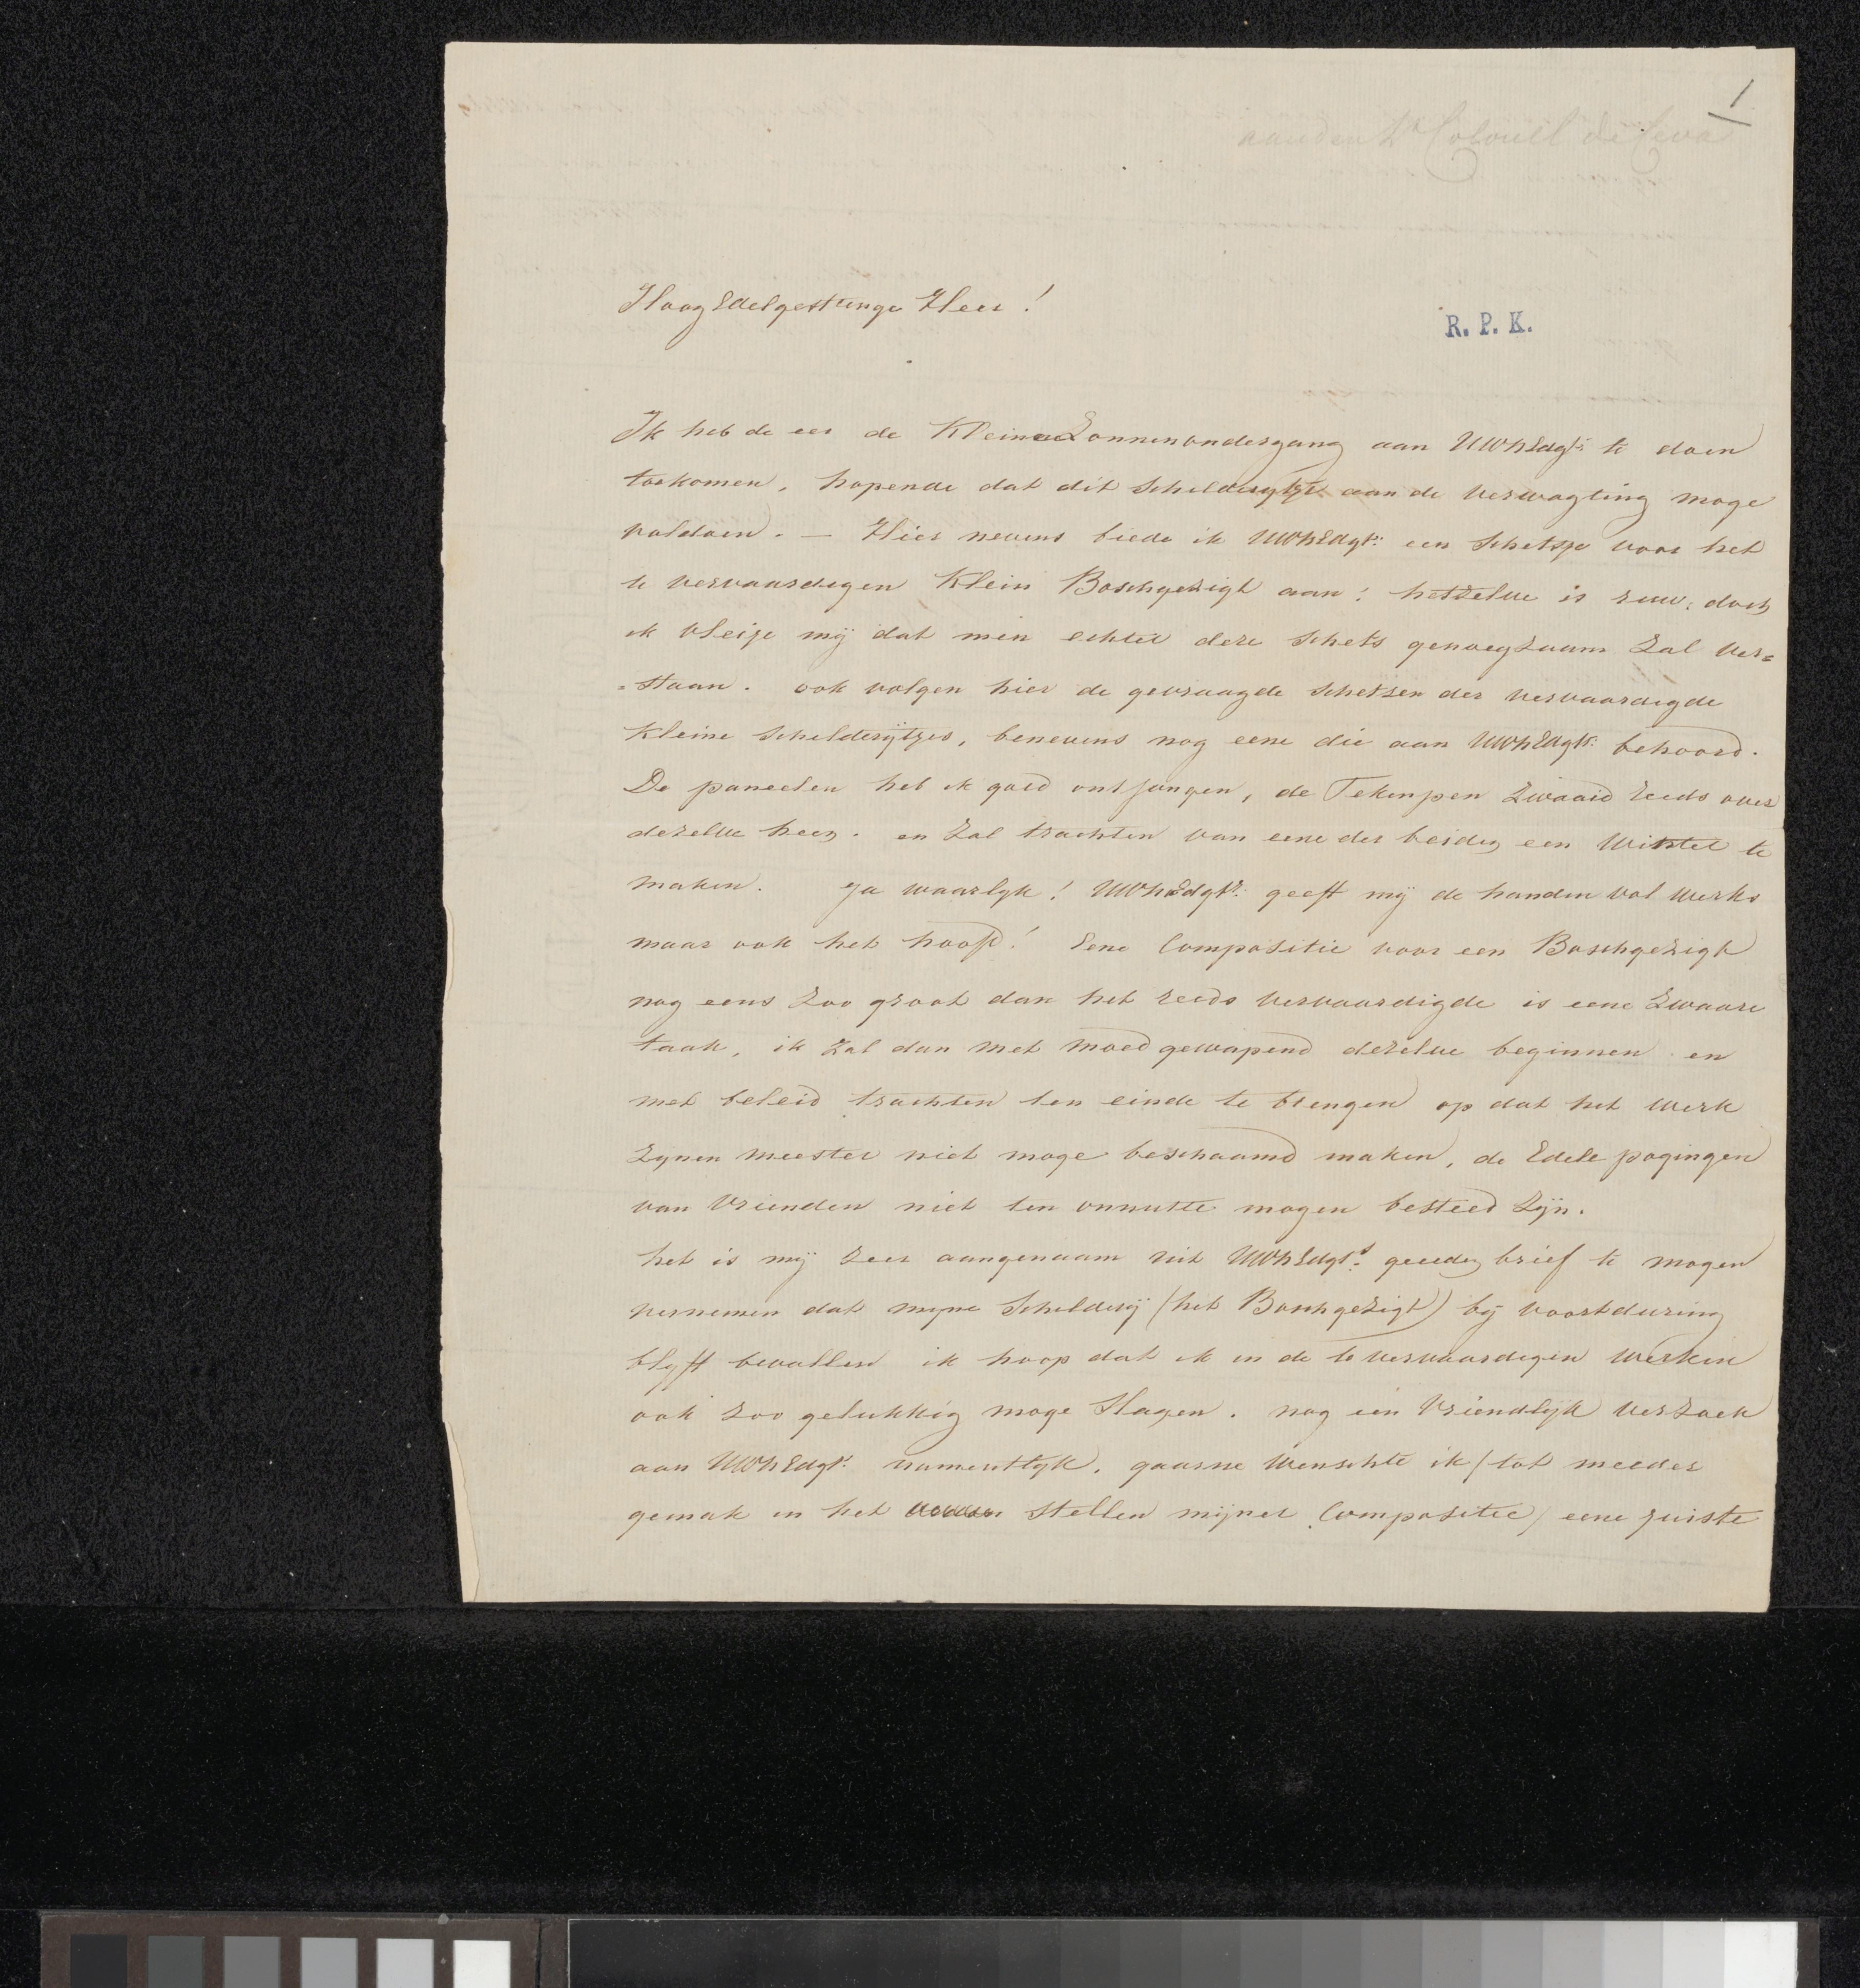 1
aan den Lt Colonel de Ceva
Hoog Edelgestrenge Heer!
R. P. K.
Ik heb de eer de Kleine Zonnenondergang aan UWhEdgtr: te doen
toekomen, hopende dat dit Schilderytje aan de verwagting moge
voldoen. — Hier nevens biede ik UWhEdgtr: een Schetsje voor het
te vervaardigen Klein Boschgezigt aan: hetzelve is ruw; doch
ik vleije mÿ dat men echter deze Schets genoegzaam zal ver=
=staan. ook volgen hier de gevraagde Schetsen der vervaardigde
Kleine Schilderÿtjes, benevens nog eene die aan UWhEdgtr: behoord.
De paneelen heb ik goed ontfangen, de Tekenpen zwaaid reeds over
dezelve heen. en zal trachten van eene der beiden een Winter te
maken. Ja waarlyk! UWhEdgtr: geeft mÿ de handen vol werks
maar ook het hoofd! Eene Compositie voor een Boschgezigt
nog eens zoo groot dan het reeds vervaardigde is eene zwaare
taak, ik zal dan met moed gewapend dezelve beginnen en
met beleid trachten ten einde te brengen op dat het werk
zynen meester niet moge beschaamd maken, de Edele pogingen
van Vrienden niet ten onnutte mogen besteed zÿn.
het is mÿ zeer aangenaam uit UWhEdgtrs geeerden brief te mogen
vernemen dat myne Schilderÿ (het Boschgezigt) bÿ voortduring
blyft bevallen ik hoop dat ik in de te vervaardigen werken
ook zoo gelukkig moge Slagen. nog een Vriendlÿk verzoek
aan UWhEdgtr: namentlyk, gaarne wenschte ik (tot meeder
gemak in het stellen mijner Compositie) eene juiste